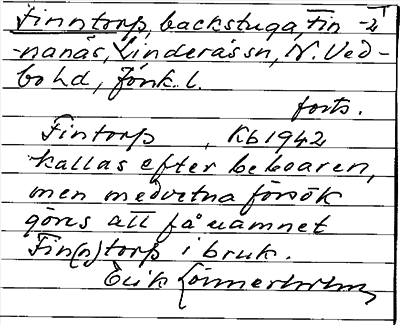 Finntorp, backstuga, Fin-
-nanäs, Linderås sn, N. Ved-
bo hd, Jönk. l.
forts.
Fintorp, Kb 1942
kallas efter beboaren,
men medvetna försök
göres att få namnet
Fin(n)torp i bruk.
Erik Lönnerholm